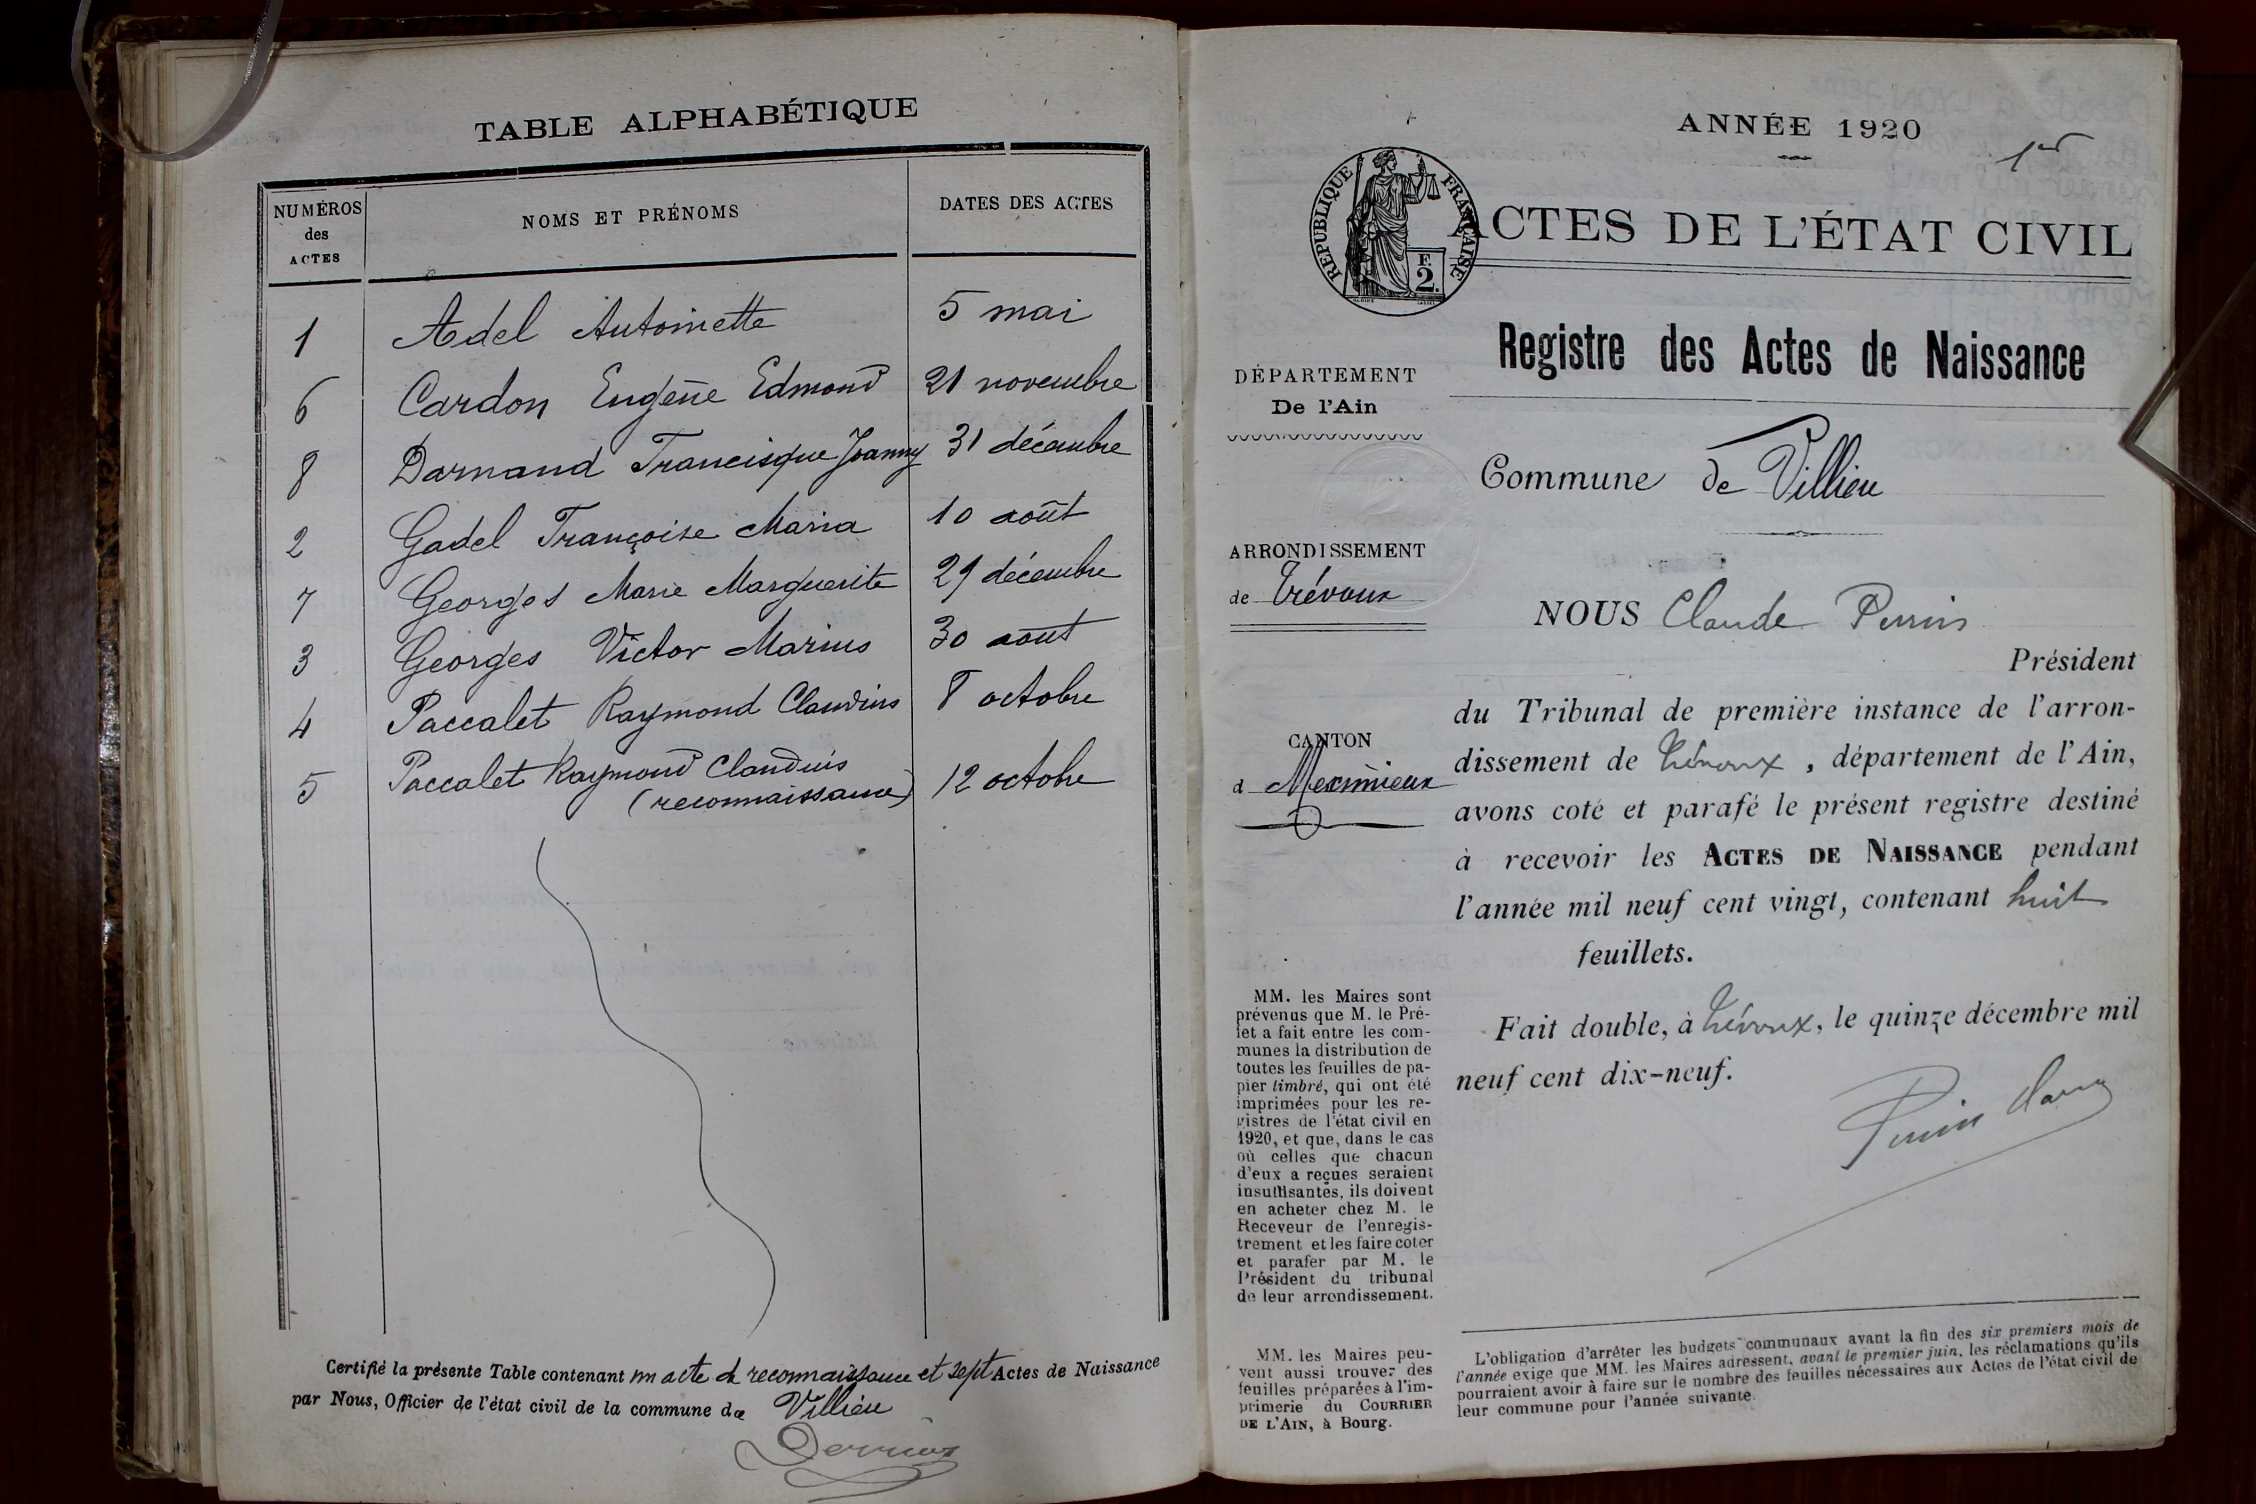 TABLE ALPHABÉTIQUE
NUMÉROS des ACTES NOMS ET PRÉNOMS DATES DES ACTES
1 Adel Antoinette 5 mai
6 Cardon Eugène Edmond 21 novembre
8 Darnand Francisque Joanny 31 décembre
2 Gadel Françoise Maria 10 août
7 Georges Marie Marguerite 29 décembre
3 Georges Victor Marius 30 août
4 Paccalet Raymond Claudius 8 octobre
5 Paccalet Raymond Claudius
(reconnaissance) 12 octobre
Certifié la présente Table contenant un acte de reconnaissance et sept Actes de Naissance
par Nous, Officier de l'état civil de la commune de Villieu
ANNÉE 1920
1er
RÉPUBLIQUE FRANÇAISE
F. 2.
ACTES DE L'ÉTAT CIVIL
Registre des Actes de Naissance
DÉPARTEMENT
De l'Ain
Commune de Villieu
ARRONDISSEMENT
de Trévoux
NOUS Claude Perrin
Président
du Tribunal de première instance de l'arron-
dissement de Trévoux, département de l'Ain,
avons coté et parafé le présent registre destiné
à recevoir les ACTES DE NAISSANCE pendant
l'année mil neuf cent vingt, contenant huit
feuillets.
Fait double, à Trévoux, le quinze décembre mil
neuf cent dix-neuf.
Perrin
CANTON
d Meximieux
MM. les Maires sont
prévenus que M. le Pré-
fet a fait entre les com-
munes la distribution de
toutes les feuilles de pa-
pier timbré, qui ont été
imprimées pour les re-
gistres de l'état civil en
1920, et que, dans le cas
où celles que chacun
d'eux a reçues seraient
insuffisantes, ils doivent
en acheter chez M. le
Receveur de l'enregis-
trement et les faire coter
et parafer par M. le
Président du tribunal
de leur arrondissement.
MM. les Maires peu-
vent aussi trouver des
feuilles préparées à l'im-
primerie du COURRIER
DE L'AIN, à Bourg.
L'obligation d'arrêter les budgets communaux avant la fin des six premiers mois de
l'année exige que MM. les Maires adressent, avant le premier juin, les réclamations qu'ils
pourraient avoir à faire sur le nombre des feuilles nécessaires aux Actes de l'état civil de
leur commune pour l'année suivante.